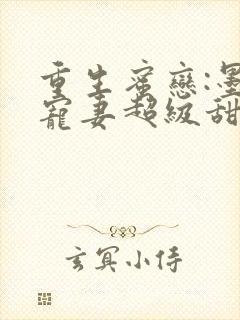 重生蜜戀:
寵妻超級甜
玄冥小侍